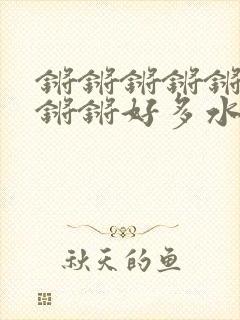 锵锵锵锵锵
锵锵好多水
秋天的鱼